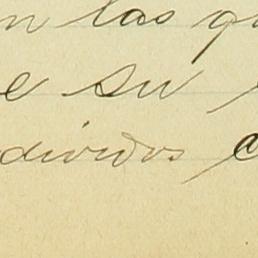 n las qu
e su
divides